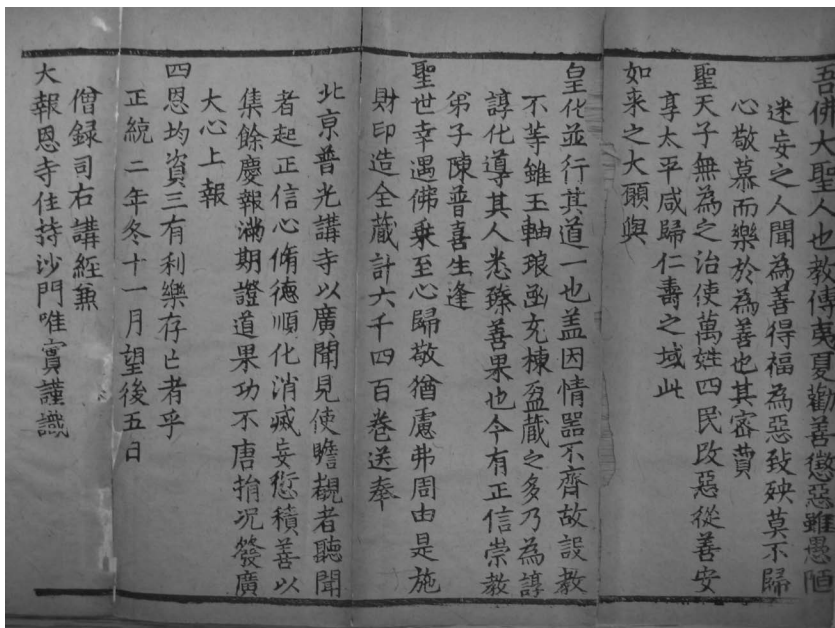 吾佛大聖人也教傳夷夏勸善懲惡雖愚陋
迷妄之人聞為善得福為惡致殃莫不歸
心敬慕而樂於為善也其密賛
聖天子無為之治使萬姓四民改惡從善安
享太平咸歸仁壽之域此
如来之大願與
皇化並行其道一也盖因情噐不齊故設教
不等雖玉軸琅凾充棟盈蔵之多乃為諄
諄化導其人悉臻善果也今有正信崇教
弟子陳普喜生逢
聖世幸遇佛乗至心歸敬猶慮弗周由是施
財印造全蔵計六千四百巻送奉
北京普光講寺以廣聞見使瞻覩者聽聞
者起正信心脩德順化消烕妄愆積善以
集餘慶報滿期證道果功不唐捐况發廣
大心上報
四恩均資三有利樂存亡者乎
正統二年冬十一月望後五日
僧録司右講經兼
大報恩寺住持沙門唯實謹識